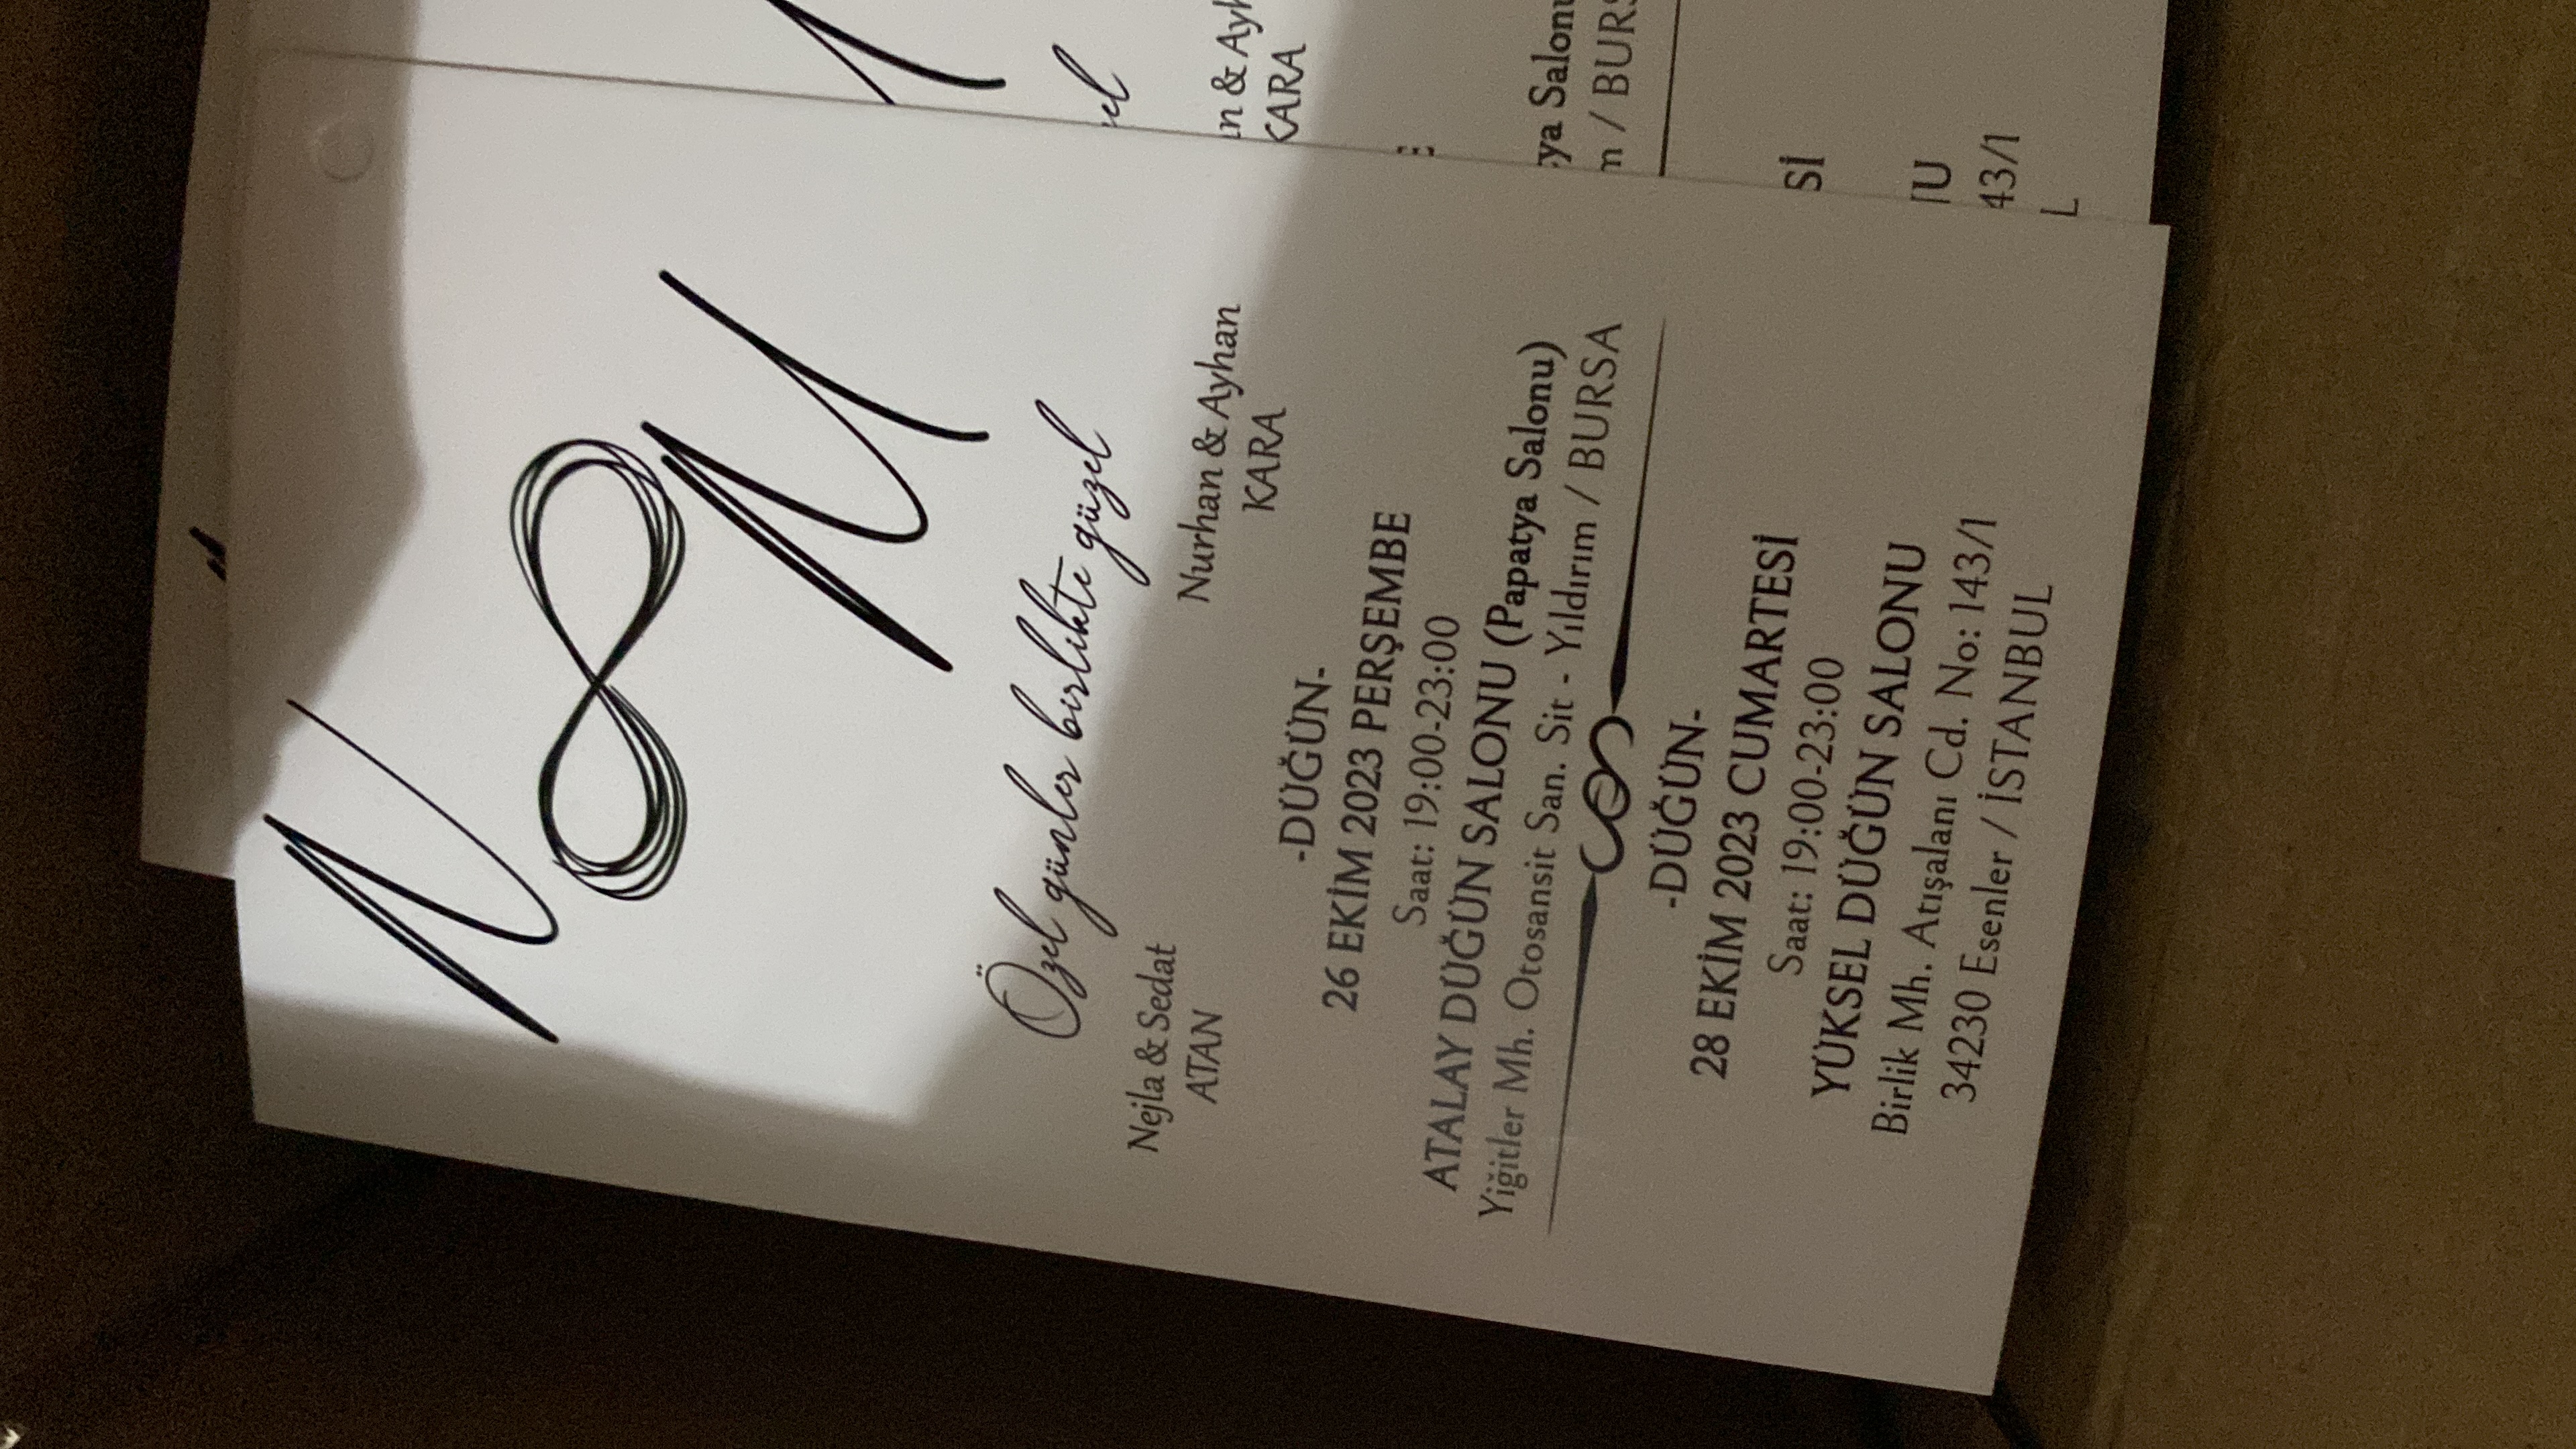 N M
Özel günler birlikte güzel
Nejla & Sedat
ATAN
Nurhan & Ayhan
KARA
-DÜĞÜN-
26 EKİM 2023 PERŞEMBE
Saat: 19:00-23:00
ATALAY DÜĞÜN SALONU (Papatya Salonu)
Yiğitler Mh. Otosansit San. Sit - Yıldırım / BURSA
-DÜĞÜN-
28 EKİM 2023 CUMARTESİ
Saat: 19:00-23:00
YÜKSEL DÜĞÜN SALONU
Birlik Mh. Atışalanı Cd. No: 143/1
34230 Esenler / İSTANBUL
n & Ayh
KARA
ya Salonu
m / BURS
Sİ
43/1
L